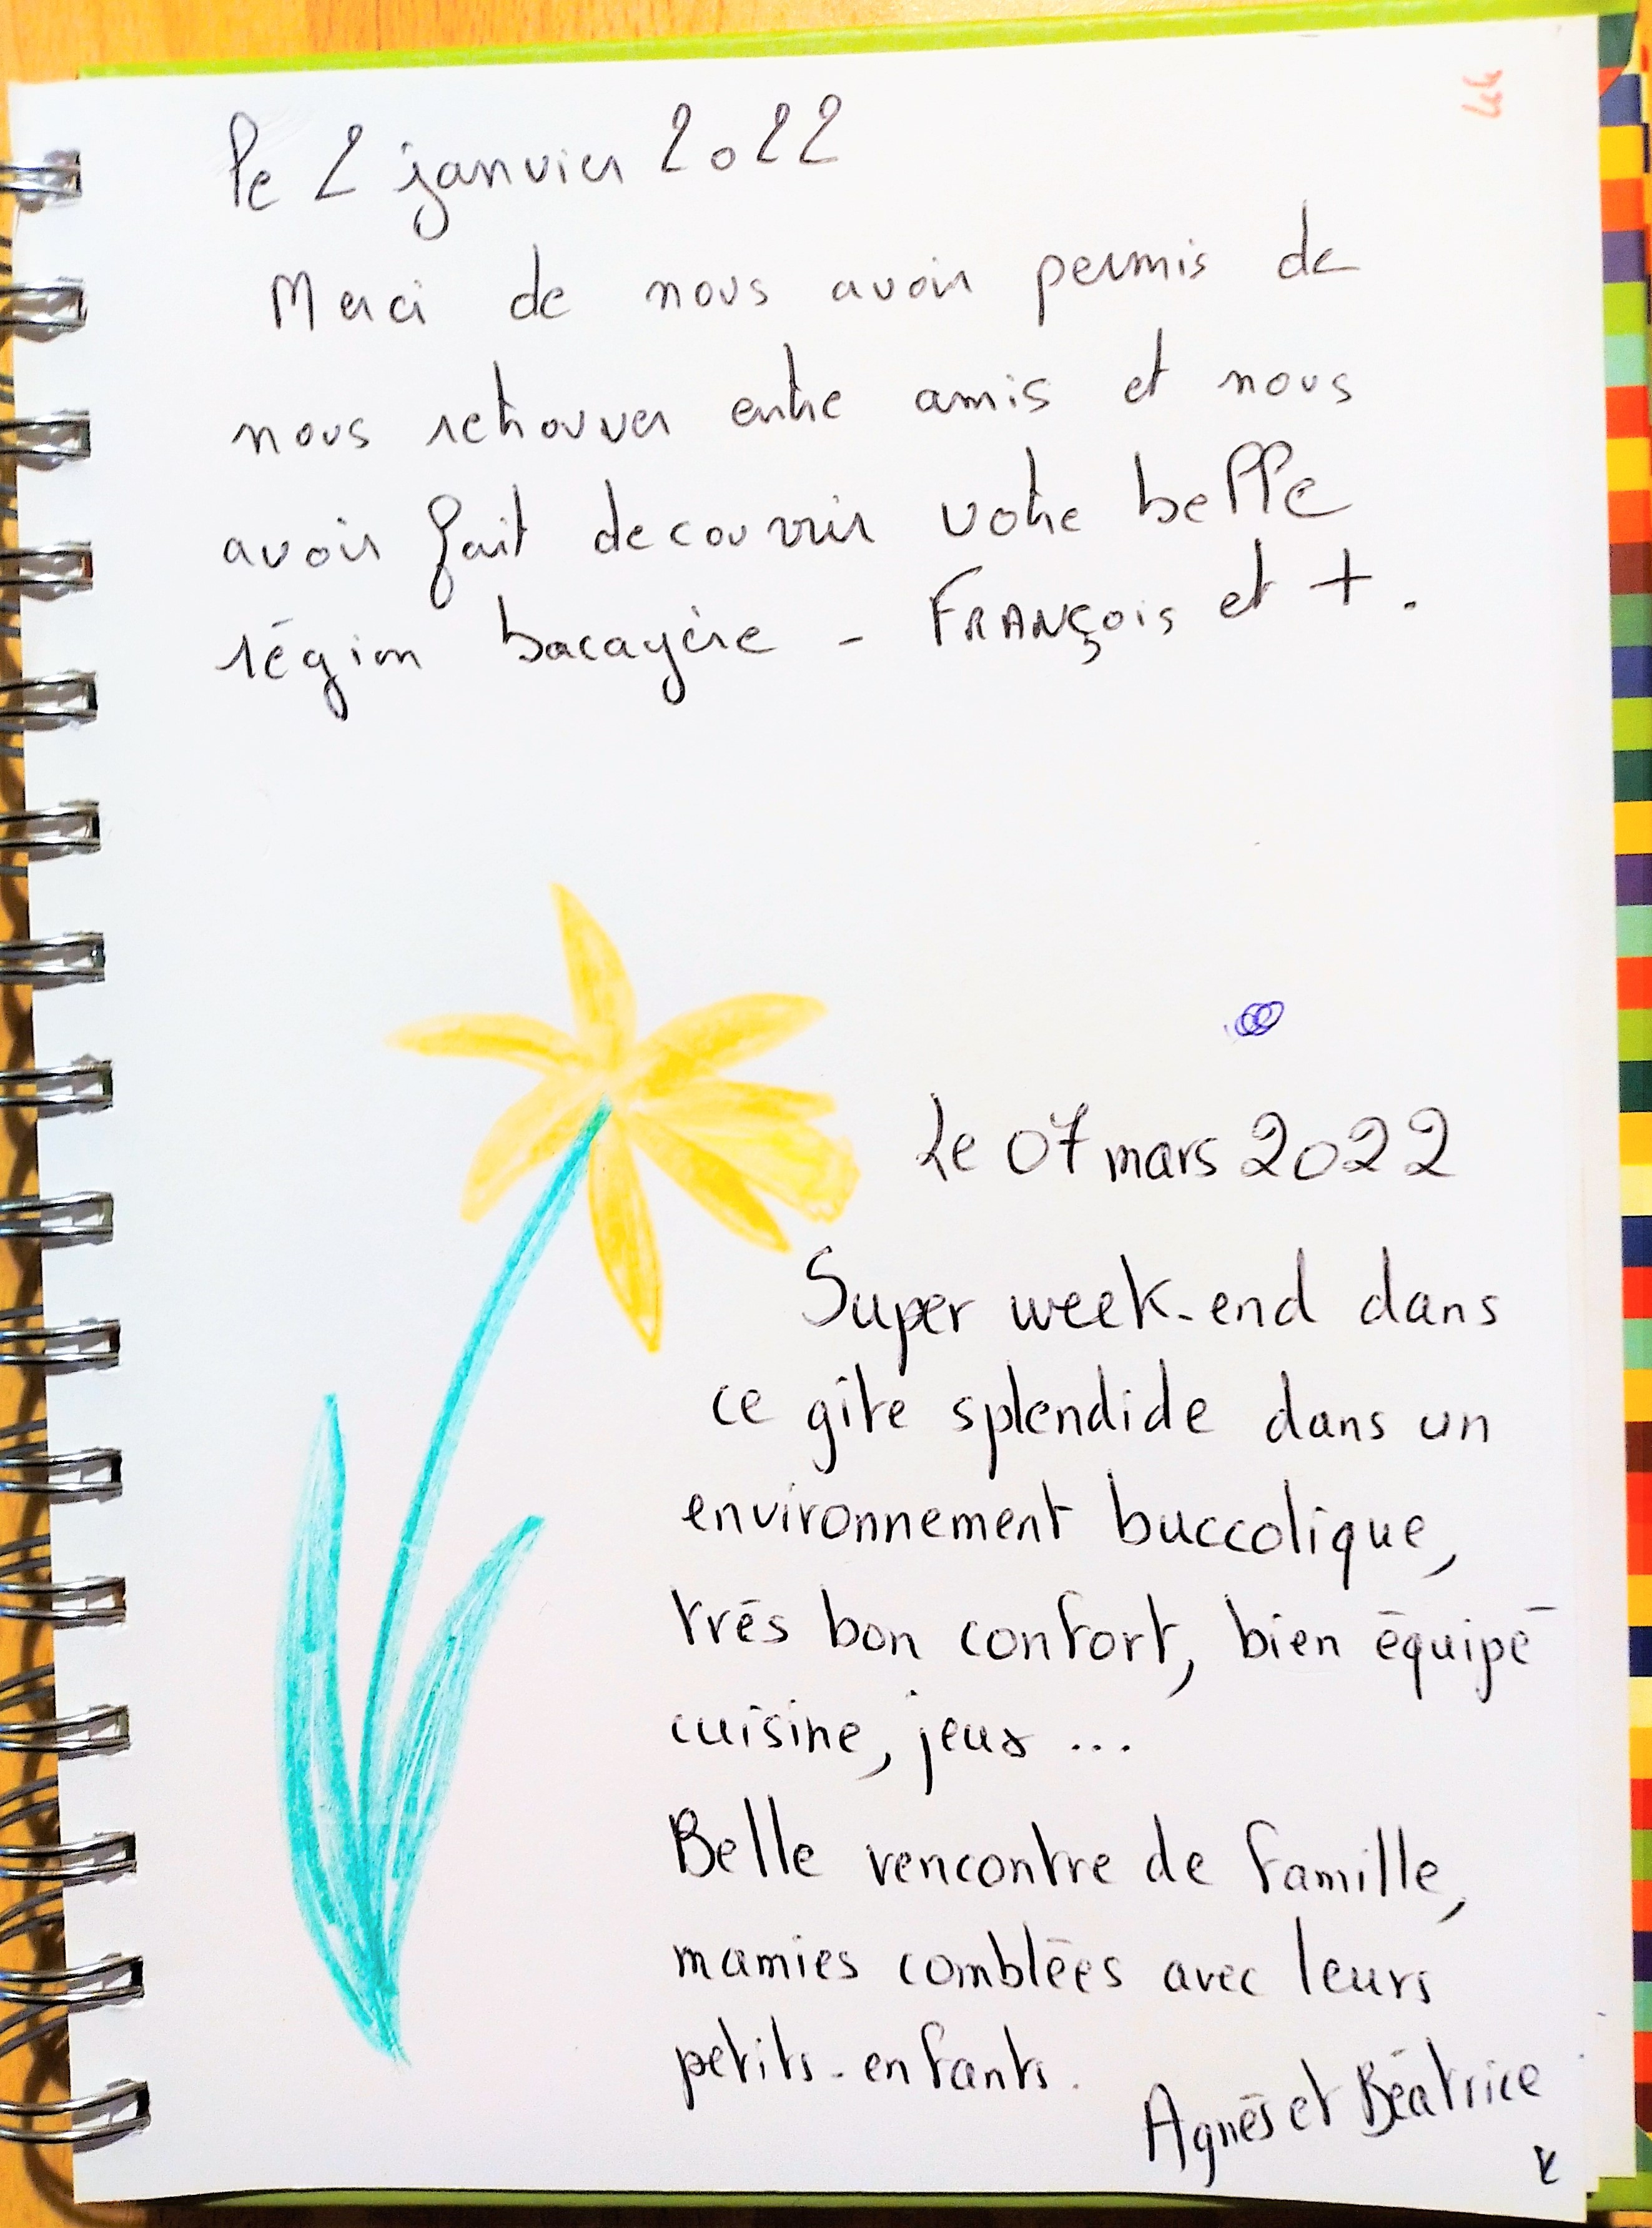 le 2 janvier 2022
Merci de nous avoir permis de
nous retrouver entre amis et nous
avoir fait decouvrir votre belle
région bocagère - FRANÇOIS et + .
Le 07 mars 2022
Super week-end dans
ce gite splendide dans un
environnement buccolique,
très bon confort, bien équipé
cuisine, jeux ...
Belle rencontre de famille,
mamies comblées avec leurs
petits-enfants.
Agnès et Béatrice